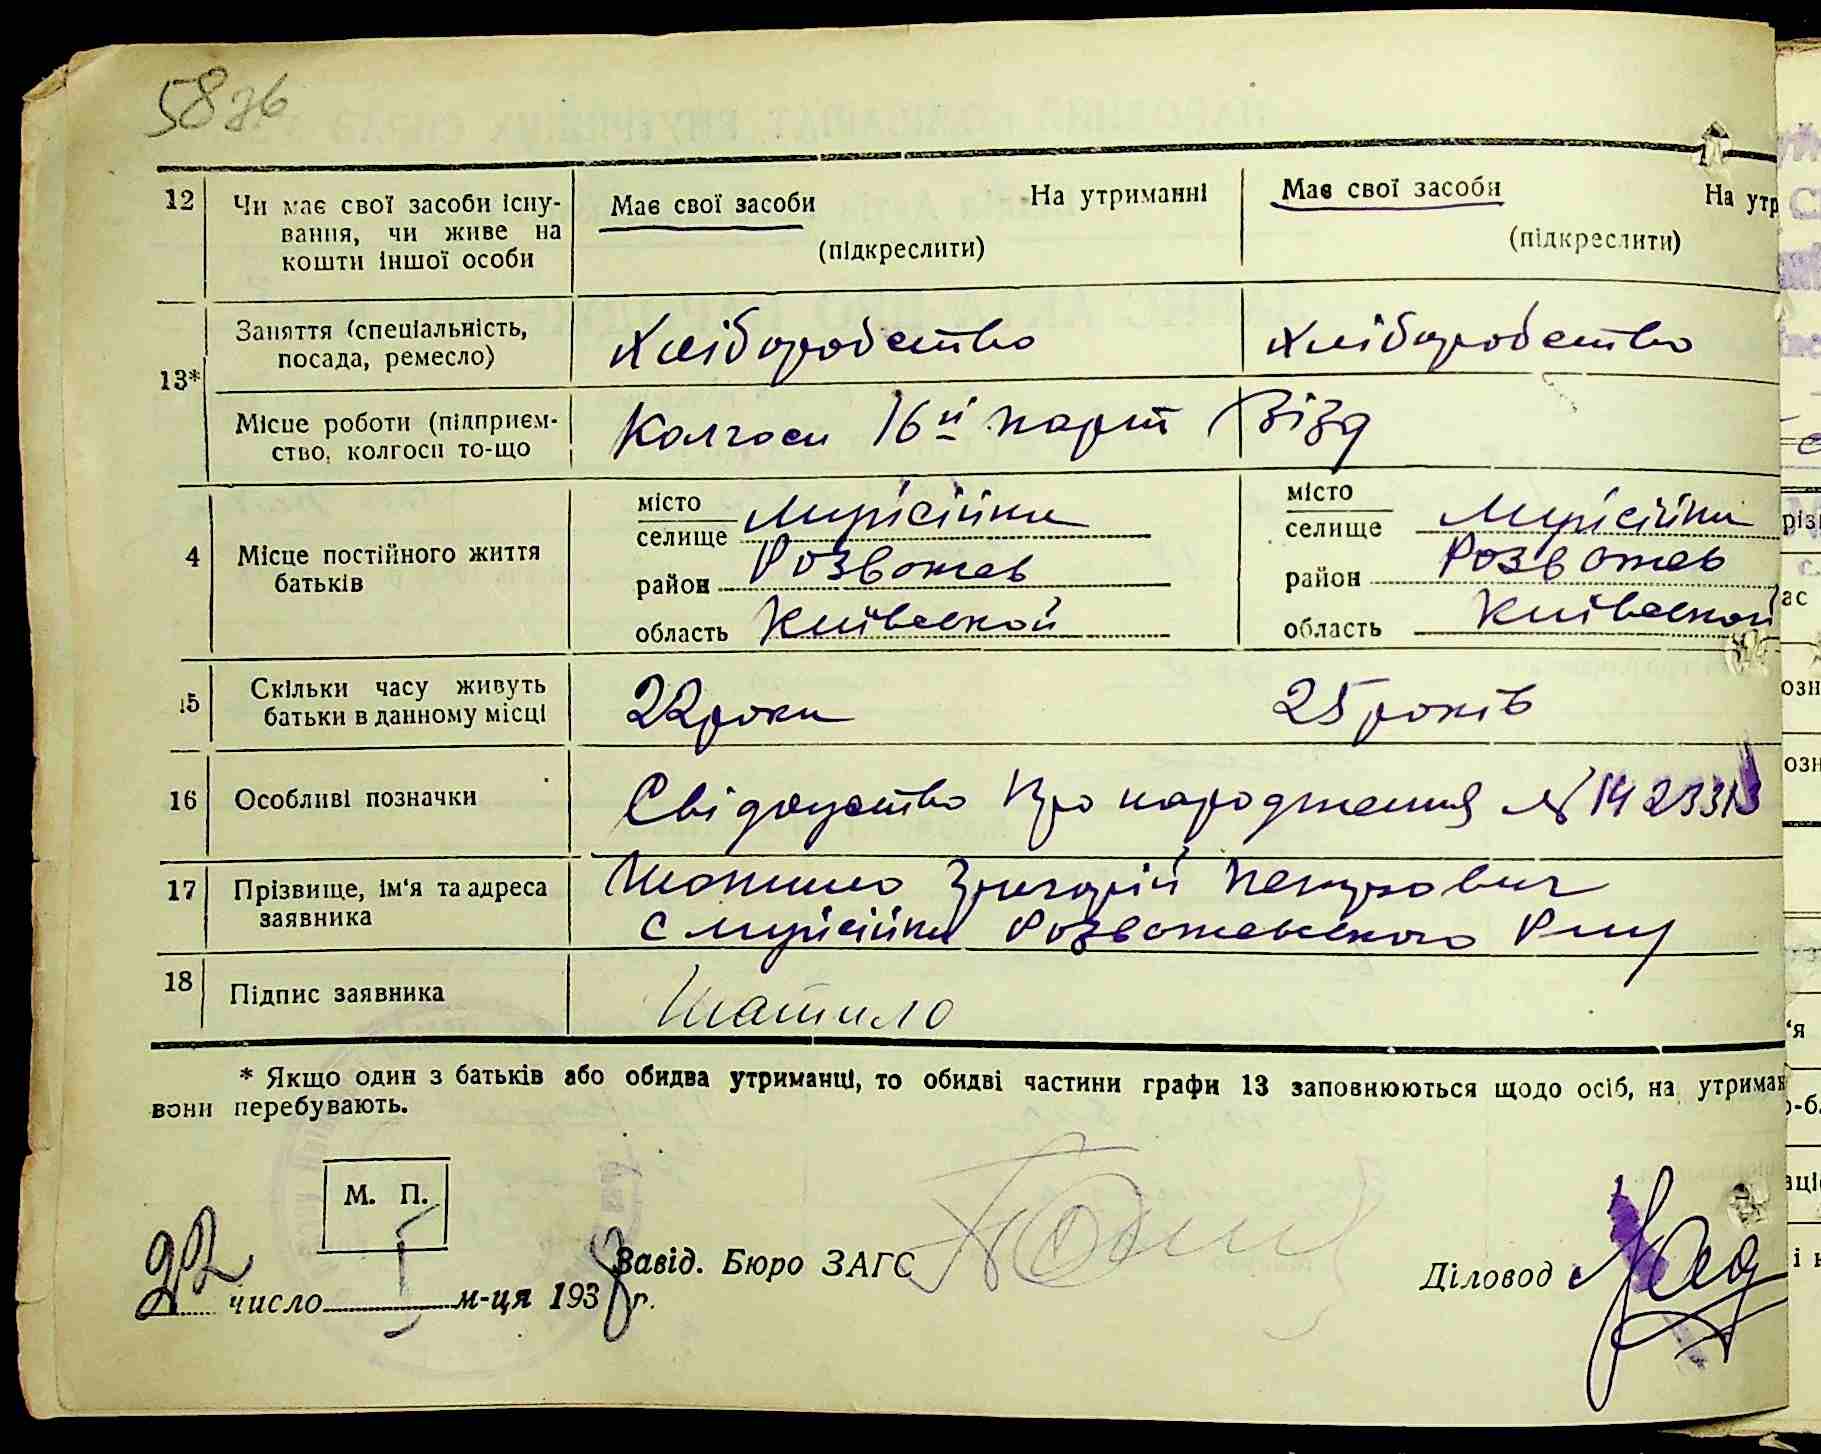 58 зв
12 Чи має свої засоби існу- Має свої засоби На утриманні Має свої засоби На утр
вання, чи живе на (підкреслити) (підкреслити)
кошти іншої особи
13* Заняття (спеціальність, Хліборобство Хліборобство
посада, ремесло)
Місце роботи (підприєм- Колгосп 16й парт Візд
ство, колгосп то-що
4 Місце постійного життя батьків
місто селище Мусійки місто селище Мусійки
район Розважев район Розважев
область Київской область Київской
15 Скільки часу живуть 22 роки 25 років
батьки в данному місці
16 Особливі позначки Свідоцтво про народження № 1423313
17 Прізвище, ім'я та адреса Шатило Григорій Петрович
заявника с Мусійки Розважевського Р-ну
18 Підпис заявника Шатило
* Якщо один з батьків або обидва утриманці, то обидві частини графи 13 заповнюються щодо осіб, на утриман
вони перебувають.
М. П.
22 число I м-ця 1938 р. Завід. Бюро ЗАГС Діловод